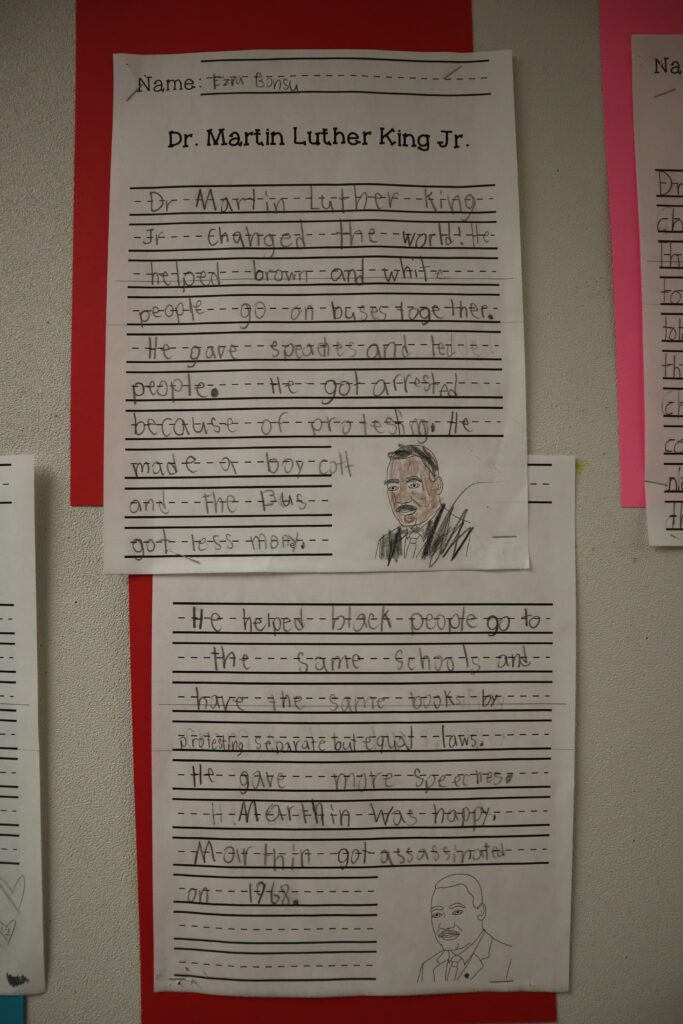 Name:
Dr. Martin Luther King Jr.
Dr Martin Luther King
Jr changed the world! He
helped brown and white
people go on buses together.
He gave speaches and led
people. He got arrested
because of protesting. He
made a boy cott
and the Bus
got less mony.
He helped black people go to
the same schools and
have the same books by
protesting separate but equal laws.
He gave more speeches.
Marthin was happy.
Marthin got assassinated
on 1968.
Na
Dr
ch